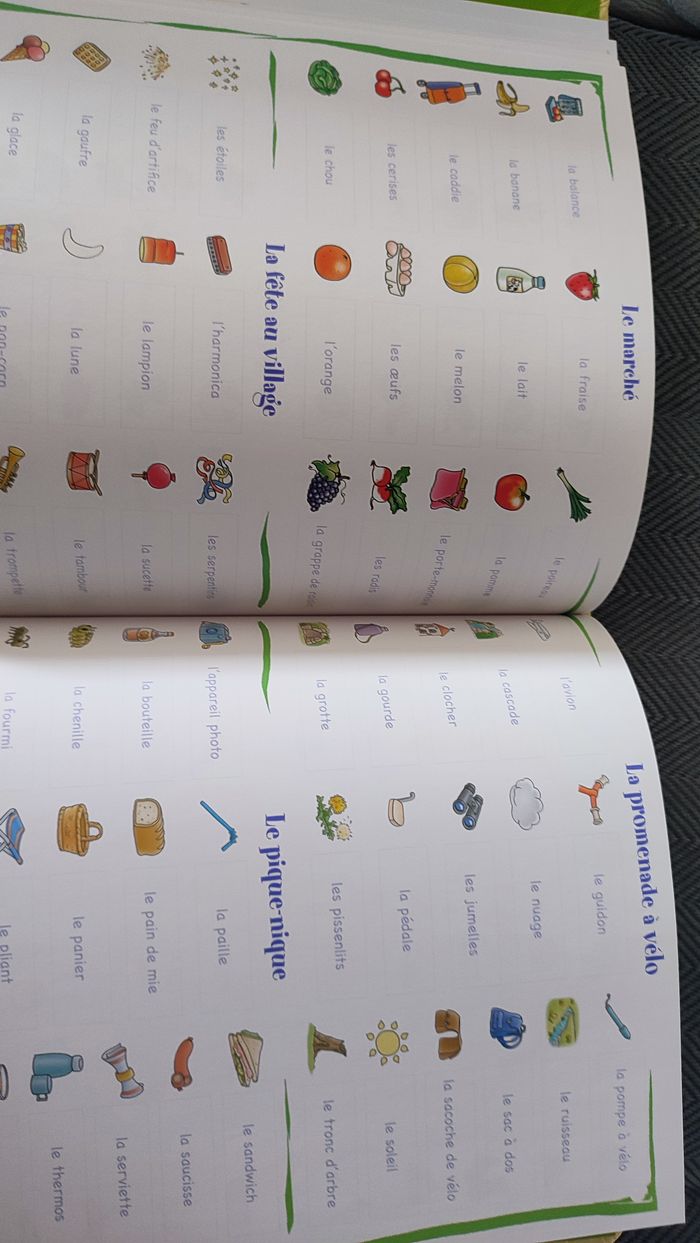 Le marché
la balance
la fraise
le poireau
la banane
le lait
la pomme
le caddie
le melon
le porte-monnaie
les cerises
les œufs
les radis
le chou
l'orange
la grappe de
La fête au village
les étoiles
l'harmonica
les serpentins
le feu d'artifice
le lampion
la sucette
la gaufre
la lune
le tambour
la glace
le pop-corn
la trompette
La promenade à vélo
l'avion
le guidon
la pompe à vélo
la cascade
le nuage
le ruisseau
le clocher
les jumelles
le sac à dos
la gourde
la pédale
la sacoche de vélo
la grotte
les pissenlits
le soleil
le tronc d'arbre
Le pique-nique
l'appareil photo
la paille
le sandwich
la bouteille
le pain de mie
la saucisse
la chenille
le panier
la serviette
la fourmi
le pliant
le thermos